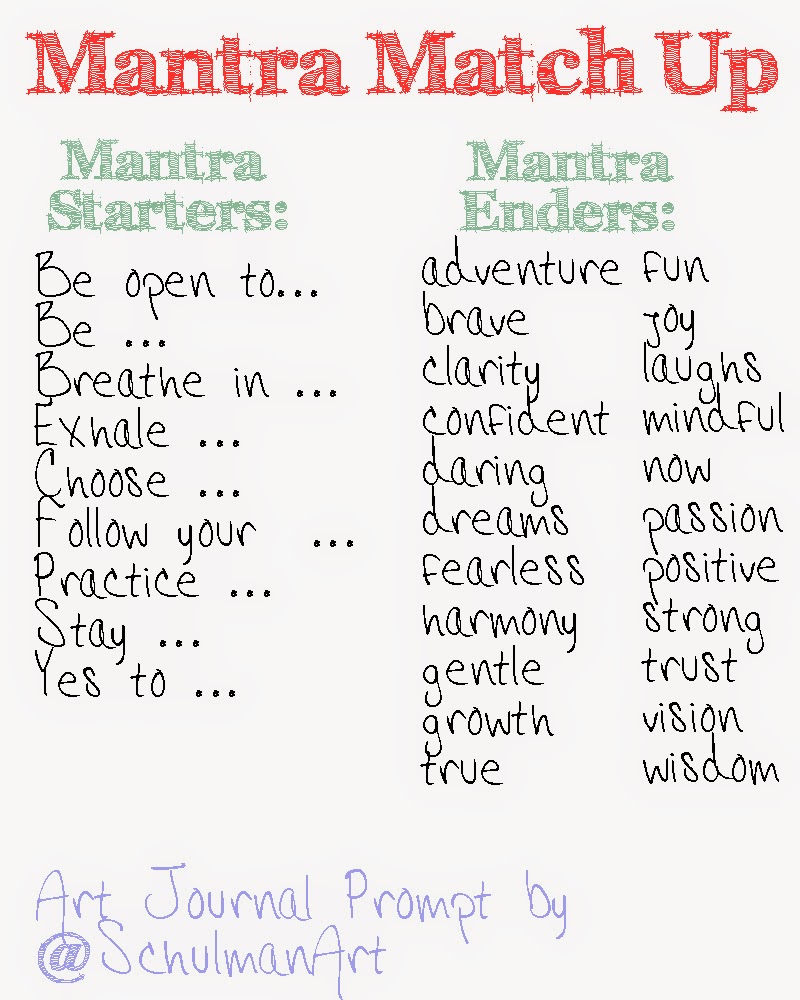 Mantra Match Up
Mantra
Starters:
Be open to...
Be ...
Breathe in ...
Exhale ...
Choose ...
Follow your ...
Practice ...
Stay ...
Yes to ...
Mantra
Enders:
adventure fun
brave joy
clarity laughs
confident mindful
daring now
dreams passion
fearless positive
harmony strong
gentle trust
growth vision
true wisdom
Art Journal Prompt by
@SchulmanArt